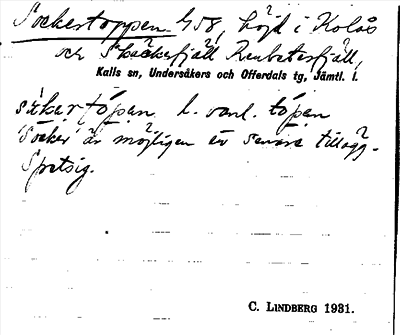 Sockertoppen 958, höjd i Kolås
och Skäckerfjäll Renbetesfjäll,
Kalls sn, Undersåkers och Offerdals tg, Jämtl. l.
såkertópan l. vanl. tópan
'Socker' är möjligen ev senare tillägg.
Spetsig.
C. LINDBERG 1931.